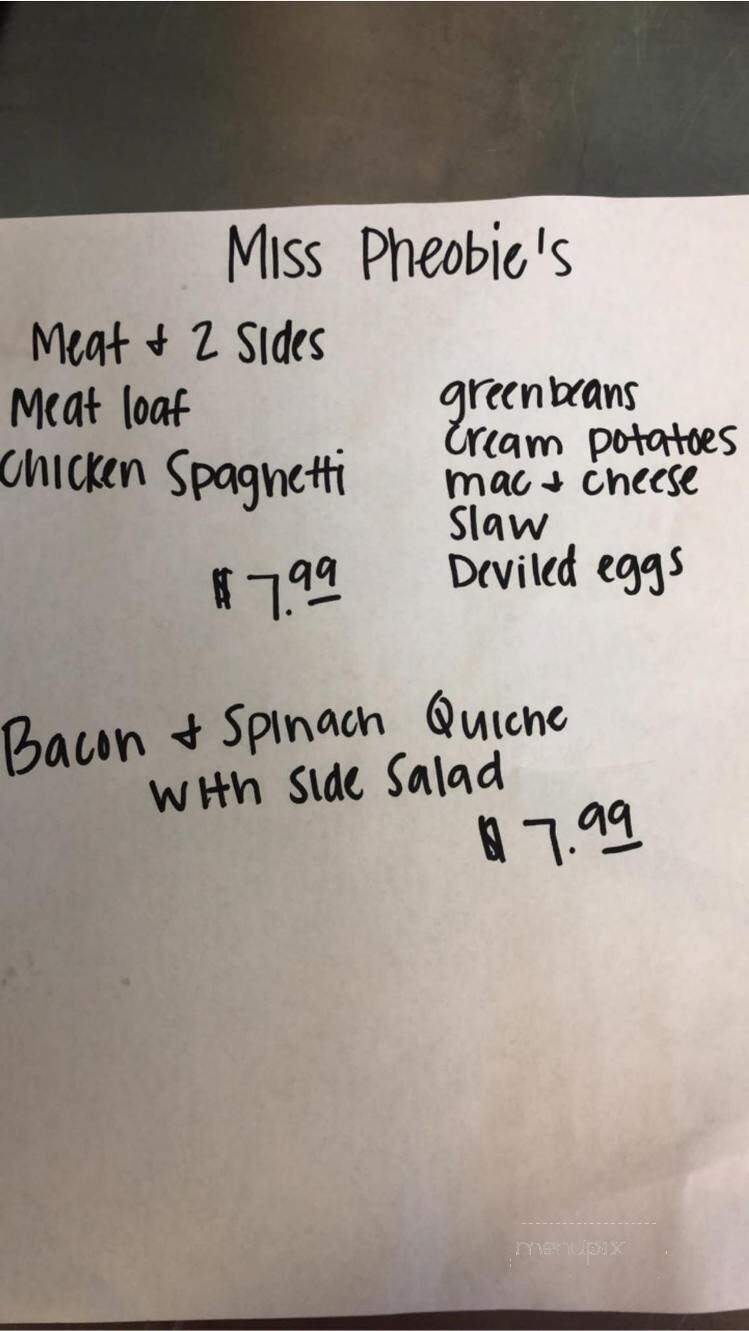 Miss Pheobie's
Meat & 2 Sides
Meat loaf
Chicken Spaghetti
$7.99
greenbeans
cream potatoes
mac & cheese
Slaw
Deviled eggs
Bacon & Spinach Quiche
with side Salad
$7.99
menupix